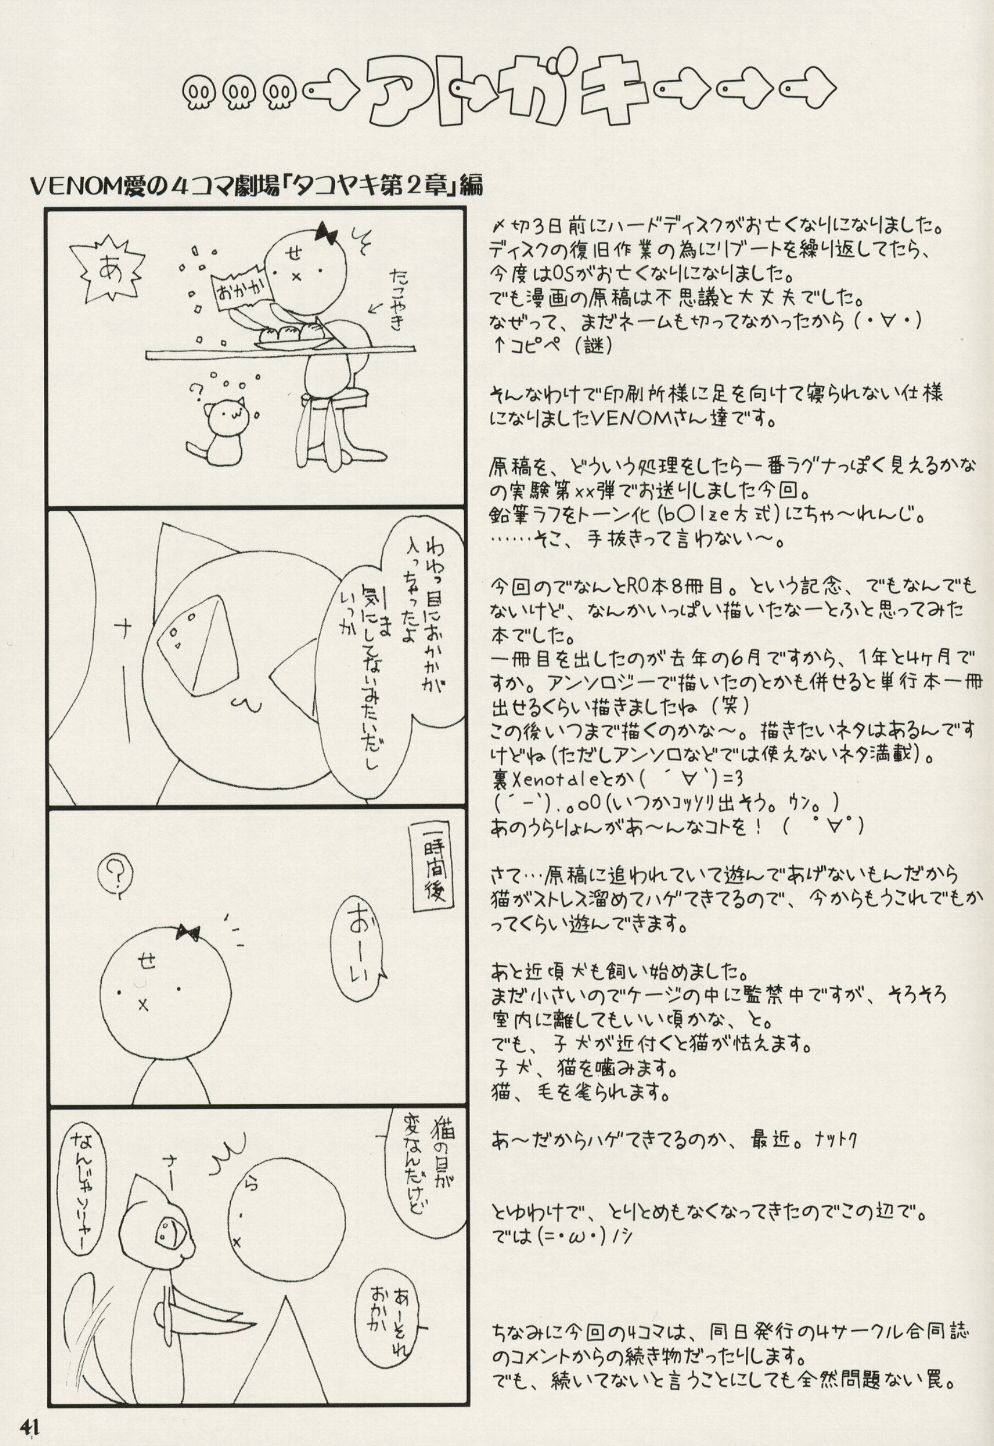 アトガキ
VENOM愛の4コマ劇場「タコヤキ第2章」編
あ
せ
おかか
たこやき
?
わわっ目におかかが
入っちゃったよ
ーま
気にしてないみたいだし
いっか
ナー
一時間後
?
おーい
せ
猫の目が
変なんだけど
ら
ナー
なんじゃソリャー
あーそれ
おかか
〆切3日前にハードディスクがお亡くなりになりました。
ディスクの復旧作業の為にリブートを繰り返してたら、
今度はOSがお亡くなりになりました。
でも漫画の原稿は不思議と大丈夫でした。
なぜって、まだネームも切ってなかったから(・∀・)
↑コピペ(謎)
そんなわけで印刷所様に足を向けて寝られない仕様
になりましたVENOMさん達です。
原稿を、どういう処理をしたら一番ラグナっぽく見えるかな
の実験第xx弾でお送りしました今回。
鉛筆ラフをトーン化(b○lze方式)にちゃ〜れんじ。
……そこ、手抜きって言わない〜。
今回のでなんとRO本8冊目。という記念、でもなんでも
ないけど、なんかいっぱい描いたなーとふと思ってみた
本でした。
一冊目を出したのが去年の6月ですから、1年と4ヶ月で
すか。アンソロジーで描いたのとかも併せると単行本一冊
出せるくらい描きましたね(笑)
この後いつまで描くのかな〜。描きたいネタはあるんです
けどね(ただしアンソロなどでは使えないネタ満載)。
裏Xenotaleとか( ´∀`)=3
(´-`).。oO(いつかコッソリ出そう。ウン。)
あのうらりょんがあ〜んなコトを!( ゚∀゚)
さて…原稿に追われていて遊んであげないもんだから
猫がストレス溜めてハゲてきてるので、今からもうこれでもか
ってくらい遊んできます。
あと近頃犬も飼い始めました。
まだ小さいのでケージの中に監禁中ですが、そろそろ
室内に離してもいい頃かな、と。
でも、子犬が近付くと猫が怯えます。
子犬、猫を噛みます。
猫、毛を毟られます。
あ〜だからハゲてきてるのか、最近。ナットク
とゆわけで、とりとめもなくなってきたのでこの辺で。
では(=・ω・)ノシ
ちなみに今回の4コマは、同日発行の4サークル合同誌
のコメントからの続き物だったりします。
でも、続いてないと言うことにしても全然問題ない罠。
41